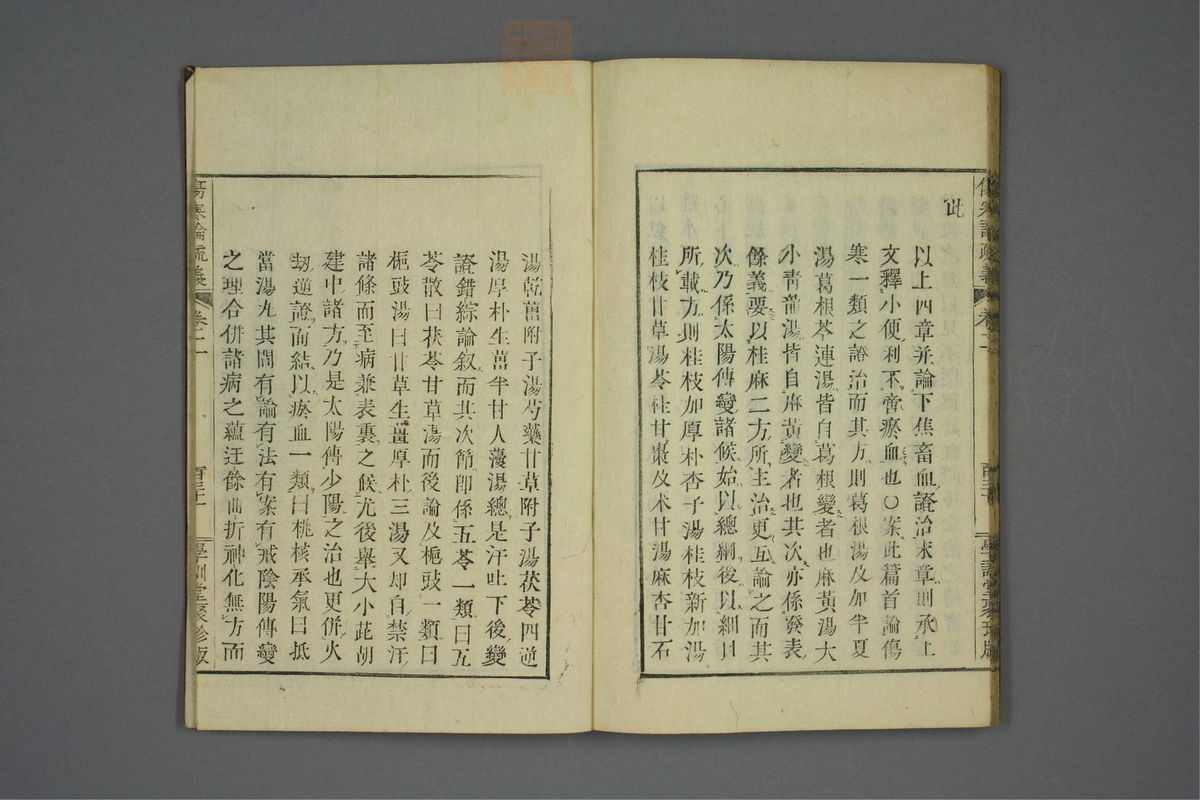 此
以上四章并論下焦畜血證治末章則承上
文釋小便利不啻瘀血也○案此篇首論傷
寒一類之證治而其方則葛根湯及加半夏
湯葛根芩連湯皆自葛根變者也麻黃湯大
小靑龍湯皆自麻黃變者也其次亦係發表
餘義要以桂麻二方所主治更互論之而其
次乃係太陽傳變諸候始以總綱後以細目
所載方則桂枝加厚朴杏子湯桂枝新加湯
桂枝甘草湯苓桂甘棗及朮甘湯麻杏甘石
湯乾薑附子湯芍藥甘草附子湯茯苓四逆
湯厚朴生薑半甘人湯總是汗吐下後變
證錯綜論叙而其次節卽係五苓一類曰五
苓散曰茯苓甘草湯而後論及梔豉一類曰
梔豉湯曰甘草生薑厚朴三湯又却自禁汗
諸條而至病兼表裏之候尤後舉大小茈胡
建中諸方乃是太陽傳少陽之治也更併火
劫逆證而結以瘀血一類曰桃核承氣曰抵
當湯丸其間有論有法有案有戒陰陽傳變
之理合併諸病之蘊迂餘曲折神化無方而
傷寒論疏義
卷二
學訓堂聚珍版